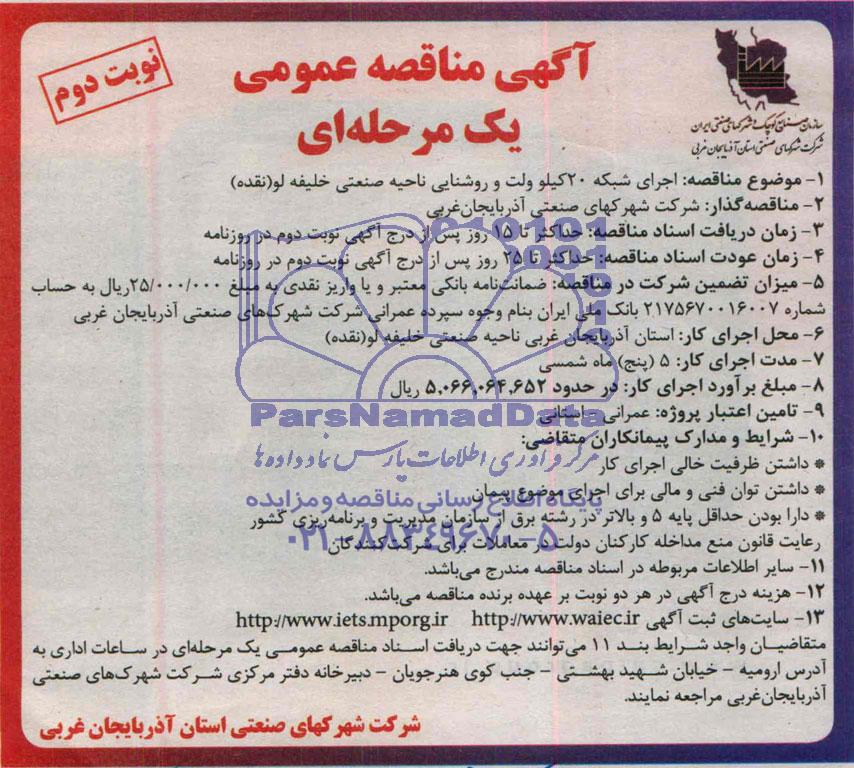 سازمان صنایع کوچک و شهرکهای صنعتی ایران
شرکت شهرکهای صنعتی استان آذربایجان غربی
نوبت دوم
آگهی مناقصه عمومی
یک مرحله‌ای
۱- موضوع مناقصه: اجرای شبکه ۲۰کیلو ولت و روشنایی ناحیه صنعتی خلیفه لو(نقده)
۲- مناقصه‌گذار: شرکت شهرکهای صنعتی آذربایجان‌غربی
۳- زمان دریافت اسناد مناقصه: حداکثر تا ۱۵ روز پس از درج آگهی نوبت دوم در روزنامه
۴- زمان عودت اسناد مناقصه: حداکثر تا ۲۵ روز پس از درج آگهی نوبت دوم در روزنامه
۵- میزان تضمین شرکت در مناقصه: ضمانت‌نامه بانکی معتبر و یا واریز نقدی به مبلغ ۲۵/۰۰۰/۰۰۰ریال به حساب
شماره ۲۱۷۵۶۷۰۰۱۶۰۰۷ بانک ملی ایران بنام وجوه سپرده عمرانی شرکت شهرک‌های صنعتی آذربایجان غربی
۶- محل اجرای کار: استان آذربایجان غربی ناحیه صنعتی خلیفه لو(نقده)
۷- مدت اجرای کار: ۵ (پنج) ماه شمسی
۸- مبلغ برآورد اجرای کار: در حدود ۵,۰۶۶,۰۶۴,۶۵۲ ریال
۹- تامین اعتبار پروژه: عمرانی - استانی
ParsNamadData
۱۰- شرایط و مدارک پیمانکاران متقاضی:
مرکز فرآوری اطلاعات پارس نماد داده‌ها
* داشتن ظرفیت خالی اجرای کار
* داشتن توان فنی و مالی برای اجرای موضوع پیمان
پایگاه اطلاع رسانی مناقصه و مزایده
* دارا بودن حداقل پایه ۵ و بالاتر در رشته برق از سازمان مدیریت و برنامه‌ریزی کشور
رعایت قانون منع مداخله کارکنان دولت در معاملات برای شرکت‌کنندگان
۰۲۱-۸۸۳۴۹۶۷۰-۵
۱۱- سایر اطلاعات مربوطه در اسناد مناقصه مندرج می‌باشد.
۱۲- هزینه درج آگهی در هر دو نوبت بر عهده برنده مناقصه می‌باشد.
۱۳- سایت‌های ثبت آگهی http://www.waiec.ir http://www.iets.mporg.ir
متقاضیان واجد شرایط بند ۱۱ می‌توانند جهت دریافت اسناد مناقصه عمومی یک مرحله‌ای در ساعات اداری به
آدرس ارومیه - خیابان شهید بهشتی - جنب کوی هنرجویان - دبیرخانه دفتر مرکزی شرکت شهرک‌های صنعتی
آذربایجان‌غربی مراجعه نمایند.
شرکت شهرکهای صنعتی استان آذربایجان غربی